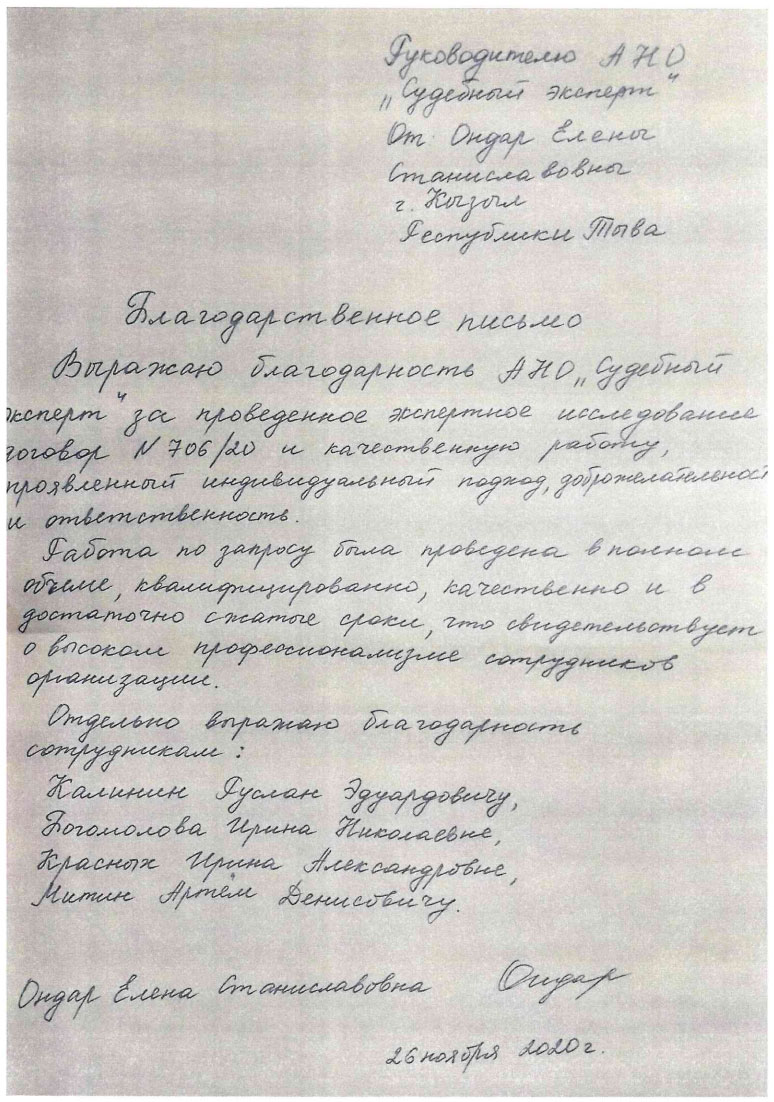 Руководителю АНО
„Судебный эксперт"
От Ондар Елены
Станиславовны
г. Кызыл
Республики Тыва
Благодарственное письмо
Выражаю благодарность АНО „Судебный
эксперт" за проведенное экспертное исследование
договор N 706/20 и качественную работу,
проявленный индивидуальный подход, доброжелательност
и ответственность.
Работа по запросу была проведена в полном
объеме, квалифицированно, качественно и в
достаточно сжатые сроки, что свидетельствует
о высоком профессионализме сотрудников
организации.
Отдельно выражаю благодарность
сотрудникам:
Калинин Руслан Эдуардовичу,
Богомолова Ирина Николаевне,
Красных Ирина Александровне,
Митин Артём Денисовичу.
Ондар Елена Станиславовна Ондар
26 ноября 2020 г.